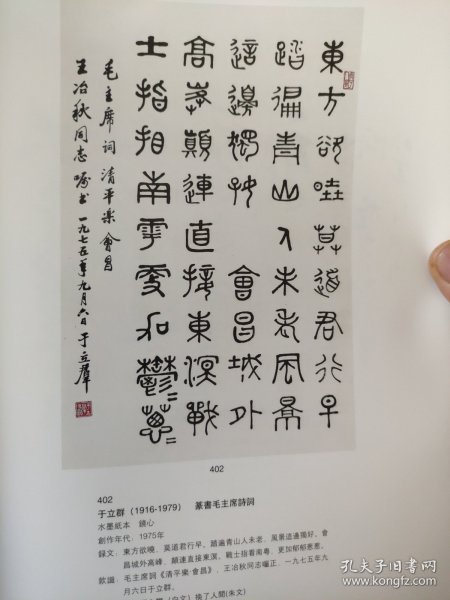 東方欲曉莫道君行早
踏徧青山人未老風景
這邊獨好會昌城外
高峯顛連直接東溟戰
士指看南粤更加鬱=蔥=
毛主席詞清平樂會昌
王冶秋同志嘱书一九七五年九月六日于立羣
402
402
于立群（1916-1979） 篆書毛主席詩詞
水墨紙本 鏡心
創作年代：1975年
録文：東方欲曉，莫道君行早。踏遍青山人未老，風景這邊獨好。會
昌城外高峰，顛連直接東溟。戰士指看南粵，更加郁郁葱葱。
款識：毛主席詞《清平樂·會昌》，王冶秋同志囑正。一九七五年九
月六日于立群。
（白文）換了人間(朱文)
孔夫子旧书网